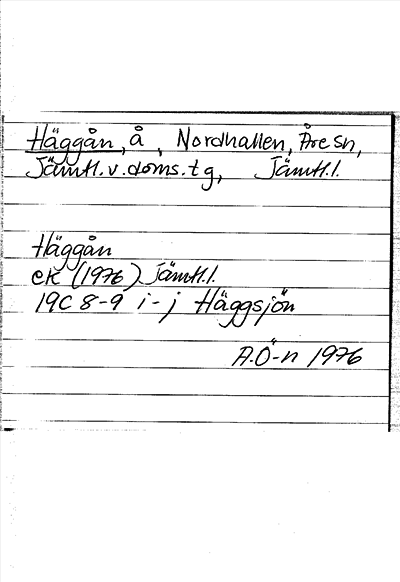 Häggån, å, Nordhallen, Åre sn,
Jämtl. v. doms. tg, Jämtl. l.
Häggån
ek (1976) Jämtl. l.
19C 8-9 i-j Häggsjön
A.Ö-n 1976